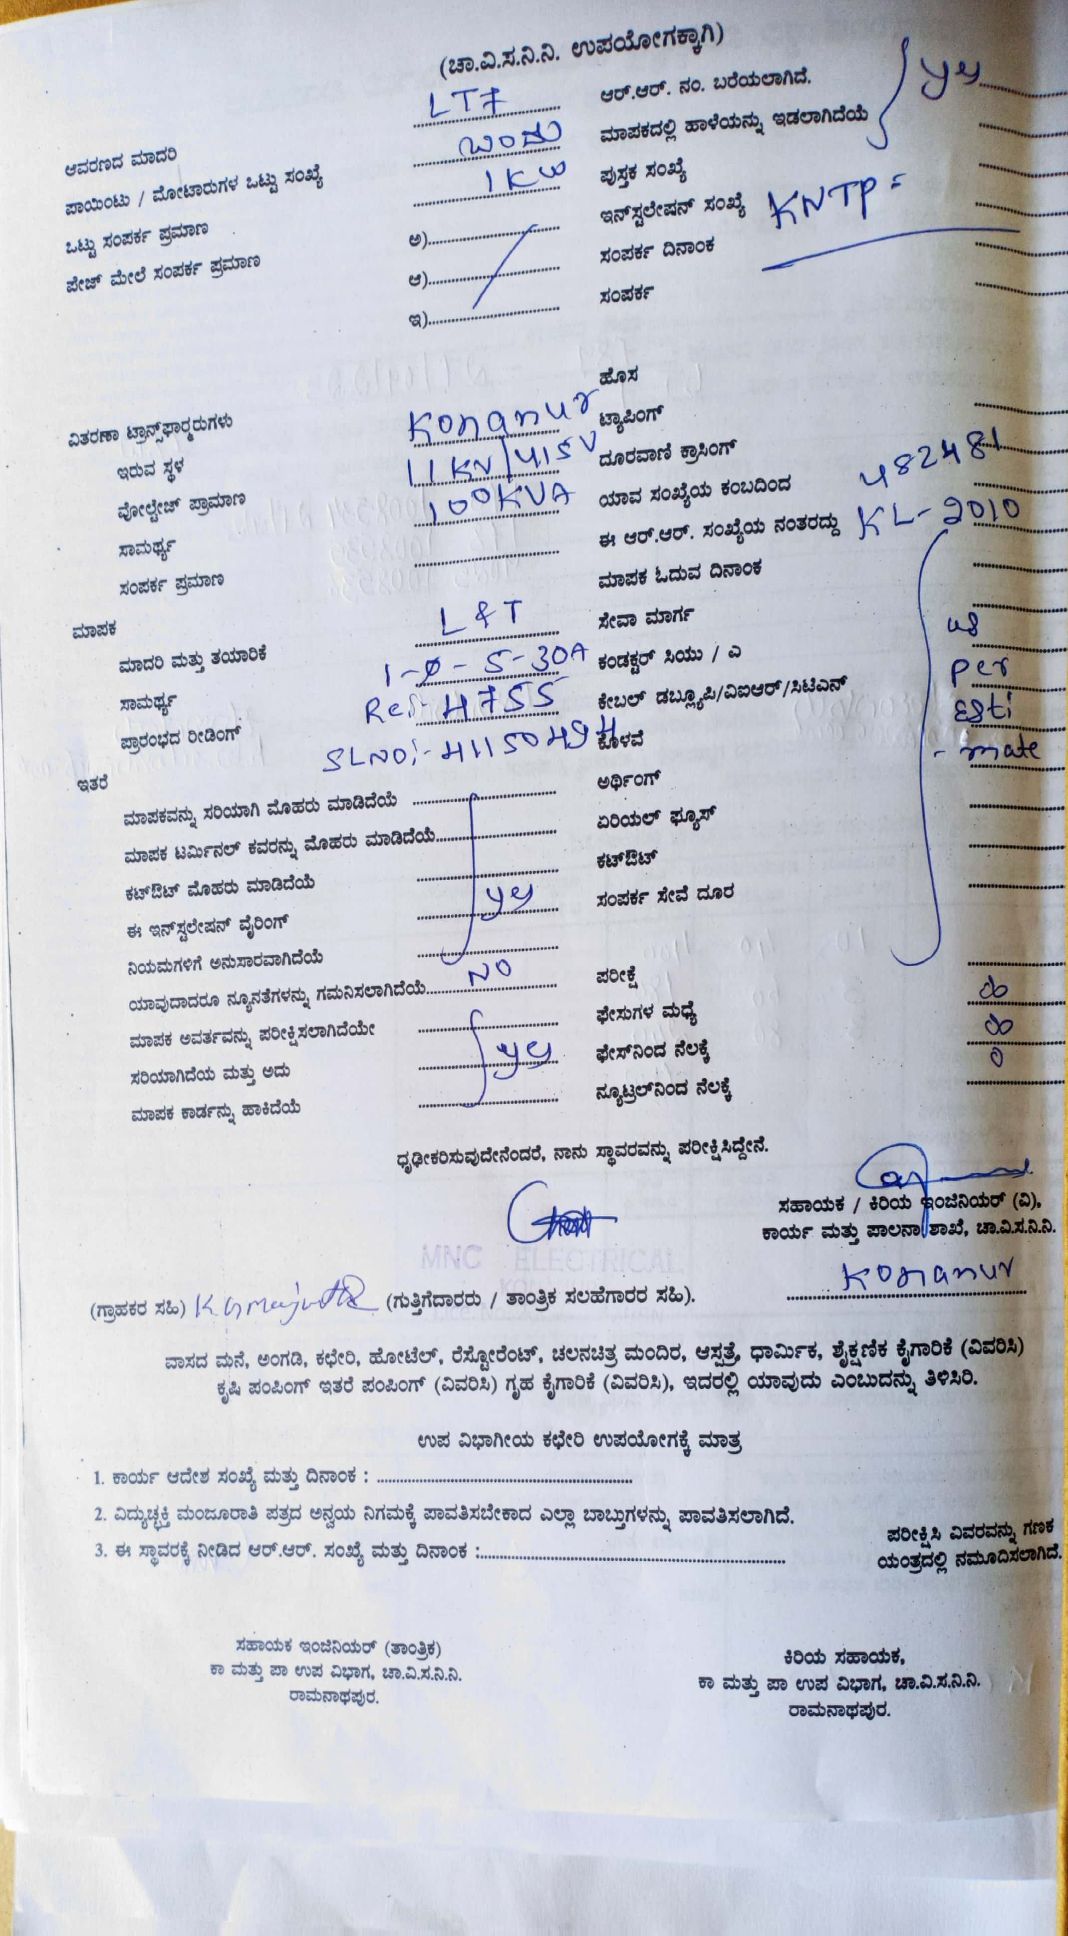 (ಚಾ.ವಿ.ಸ.ನಿ.ನಿ. ಉಪಯೋಗಕ್ಕಾಗಿ)
ಆವರಣದ ಮಾದರಿ LT7 ಆರ್.ಆರ್. ನಂ. ಬರೆಯಲಾಗಿದೆ.
ಪಾಯಿಂಟು / ಮೋಟಾರುಗಳ ಒಟ್ಟು ಸಂಖ್ಯೆ ಒಂದು ಮಾಪಕದಲ್ಲಿ ಹಾಳೆಯನ್ನು ಇಡಲಾಗಿದೆಯೆ yes
ಒಟ್ಟು ಸಂಪರ್ಕ ಪ್ರಮಾಣ 1KW ಪುಸ್ತಕ ಸಂಖ್ಯೆ
ಪೇಜ್ ಮೇಲೆ ಸಂಪರ್ಕ ಪ್ರಮಾಣ ಅ) ಇನ್‌ಸ್ಟಲೇಷನ್ ಸಂಖ್ಯೆ KNTP=
ಆ) ಸಂಪರ್ಕ ದಿನಾಂಕ
ಇ) ಸಂಪರ್ಕ
ಹೊಸ
ವಿತರಣಾ ಟ್ರಾನ್ಸ್‌ಫಾರ್‍ಮರುಗಳು Konanur ಟ್ಯಾಪಿಂಗ್
ಇರುವ ಸ್ಥಳ 11KV/415V ದೂರವಾಣಿ ಕ್ರಾಸಿಂಗ್
ವೋಲ್ಟೇಜ್ ಪ್ರಾಮಾಣ 100KVA ಯಾವ ಸಂಖ್ಯೆಯ ಕಂಬದಿಂದ 482481
ಸಾಮರ್ಥ್ಯ ಈ ಆರ್.ಆರ್. ಸಂಖ್ಯೆಯ ನಂತರದ್ದು KL-2010
ಸಂಪರ್ಕ ಪ್ರಮಾಣ ಮಾಪಕ ಓದುವ ದಿನಾಂಕ
ಮಾಪಕ L&T ಸೇವಾ ಮಾರ್ಗ as
ಮಾದರಿ ಮತ್ತು ತಯಾರಿಕೆ 1-Ø-5-30A ಕಂಡಕ್ಟರ್ ಸಿಯು / ಎ per
ಸಾಮರ್ಥ್ಯ Red- 4755 ಕೇಬಲ್ ಡಬ್ಲ್ಯೂಪಿ/ವಿಐಆರ್/ಸಿಟಿಎನ್ Esti
ಪ್ರಾರಂಭದ ರೀಡಿಂಗ್ SLNO:- 41150494 ಕೊಳವೆ -mate
ಇತರೆ ಅರ್ಥಿಂಗ್
ಮಾಪಕವನ್ನು ಸರಿಯಾಗಿ ಮೊಹರು ಮಾಡಿದೆಯೆ ಏರಿಯಲ್ ಫ್ಯೂಸ್
ಮಾಪಕ ಟರ್ಮಿನಲ್ ಕವರನ್ನು ಮೊಹರು ಮಾಡಿದೆಯೆ ಕಟ್‌ಔಟ್
ಕಟ್‌ಔಟ್ ಮೊಹರು ಮಾಡಿದೆಯೆ yes ಸಂಪರ್ಕ ಸೇವೆ ದೂರ
ಈ ಇನ್‌ಸ್ಟಲೇಷನ್ ವೈರಿಂಗ್
ನಿಯಮಗಳಿಗೆ ಅನುಸಾರವಾಗಿದೆಯೆ
ಯಾವುದಾದರೂ ನ್ಯೂನತೆಗಳನ್ನು ಗಮನಿಸಲಾಗಿದೆಯೆ NO ಪರೀಕ್ಷೆ
ಮಾಪಕ ಅವರ್ತವನ್ನು ಪರೀಕ್ಷಿಸಲಾಗಿದೆಯೇ ಫೇಸುಗಳ ಮಧ್ಯೆ ∞
ಸರಿಯಾಗಿದೆಯ ಮತ್ತು ಅದು yes ಫೇಸ್‌ನಿಂದ ನೆಲಕ್ಕೆ ∞
ಮಾಪಕ ಕಾರ್ಡನ್ನು ಹಾಕಿದೆಯೆ ನ್ಯೂಟ್ರಲ್‌ನಿಂದ ನೆಲಕ್ಕೆ 0
ಧೃಢೀಕರಿಸುವುದೇನೆಂದರೆ, ನಾನು ಸ್ಥಾವರವನ್ನು ಪರೀಕ್ಷಿಸಿದ್ದೇನೆ.
ಸಹಾಯಕ / ಕಿರಿಯ ಇಂಜಿನಿಯರ್ (ವಿ),
ಕಾರ್ಯ ಮತ್ತು ಪಾಲನಾ ಶಾಖೆ, ಚಾ.ವಿ.ಸ.ನಿ.ನಿ.
MNC ELECTRICAL
Konanur
(ಗ್ರಾಹಕರ ಸಹಿ) (ಗುತ್ತಿಗೆದಾರರು / ತಾಂತ್ರಿಕ ಸಲಹೆಗಾರರ ಸಹಿ).
ವಾಸದ ಮನೆ, ಅಂಗಡಿ, ಕಛೇರಿ, ಹೋಟೆಲ್, ರೆಸ್ಟೋರೆಂಟ್, ಚಲನಚಿತ್ರ ಮಂದಿರ, ಆಸ್ಪತ್ರೆ, ಧಾರ್ಮಿಕ, ಶೈಕ್ಷಣಿಕ ಕೈಗಾರಿಕೆ (ವಿವರಿಸಿ)
ಕೃಷಿ ಪಂಪಿಂಗ್ ಇತರೆ ಪಂಪಿಂಗ್ (ವಿವರಿಸಿ) ಗೃಹ ಕೈಗಾರಿಕೆ (ವಿವರಿಸಿ), ಇದರಲ್ಲಿ ಯಾವುದು ಎಂಬುದನ್ನು ತಿಳಿಸಿರಿ.
ಉಪ ವಿಭಾಗೀಯ ಕಛೇರಿ ಉಪಯೋಗಕ್ಕೆ ಮಾತ್ರ
1. ಕಾರ್ಯ ಆದೇಶ ಸಂಖ್ಯೆ ಮತ್ತು ದಿನಾಂಕ :
2. ವಿದ್ಯುಚ್ಛಕ್ತಿ ಮಂಜೂರಾತಿ ಪತ್ರದ ಅನ್ವಯ ನಿಗಮಕ್ಕೆ ಪಾವತಿಸಬೇಕಾದ ಎಲ್ಲಾ ಬಾಬ್ತುಗಳನ್ನು ಪಾವತಿಸಲಾಗಿದೆ.
3. ಈ ಸ್ಥಾವರಕ್ಕೆ ನೀಡಿದ ಆರ್.ಆರ್. ಸಂಖ್ಯೆ ಮತ್ತು ದಿನಾಂಕ :
ಪರೀಕ್ಷಿಸಿ ವಿವರವನ್ನು ಗಣಕ
ಯಂತ್ರದಲ್ಲಿ ನಮೂದಿಸಲಾಗಿದೆ.
ಸಹಾಯಕ ಇಂಜಿನಿಯರ್ (ತಾಂತ್ರಿಕ)
ಕಾ ಮತ್ತು ಪಾ ಉಪ ವಿಭಾಗ, ಚಾ.ವಿ.ಸ.ನಿ.ನಿ.
ರಾಮನಾಥಪುರ.
ಕಿರಿಯ ಸಹಾಯಕ,
ಕಾ ಮತ್ತು ಪಾ ಉಪ ವಿಭಾಗ, ಚಾ.ವಿ.ಸ.ನಿ.ನಿ.
ರಾಮನಾಥಪುರ.